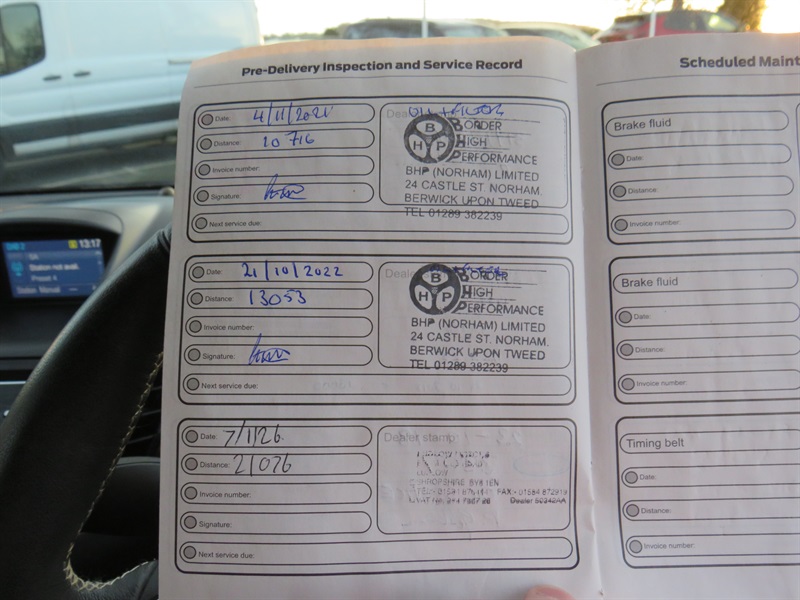 Pre-Delivery Inspection and Service Record
Date: 4/11/2021
Distance: 10716
Invoice number:
Signature:
Next service due:
B H P
BORDER
HIGH
PERFORMANCE
BHP (NORHAM) LIMITED
24 CASTLE ST. NORHAM.
BERWICK UPON TWEED
TEL 01289 382239
Date: 21/10/2022
Distance: 13053
Invoice number:
Signature:
Next service due:
B H P
BORDER
HIGH
PERFORMANCE
BHP (NORHAM) LIMITED
24 CASTLE ST. NORHAM.
BERWICK UPON TWEED
TEL 01289 382239
Date: 7/1/26
Distance: 21076
Invoice number:
Signature:
Next service due:
Dealer stamp:
FAX:- 01584 872919
Dealer
Scheduled Maint
Brake fluid
Date:
Distance:
Invoice number:
Brake fluid
Date:
Distance:
Invoice number:
Timing belt
Date:
Distance:
Invoice number:
13:17
Station not avail.